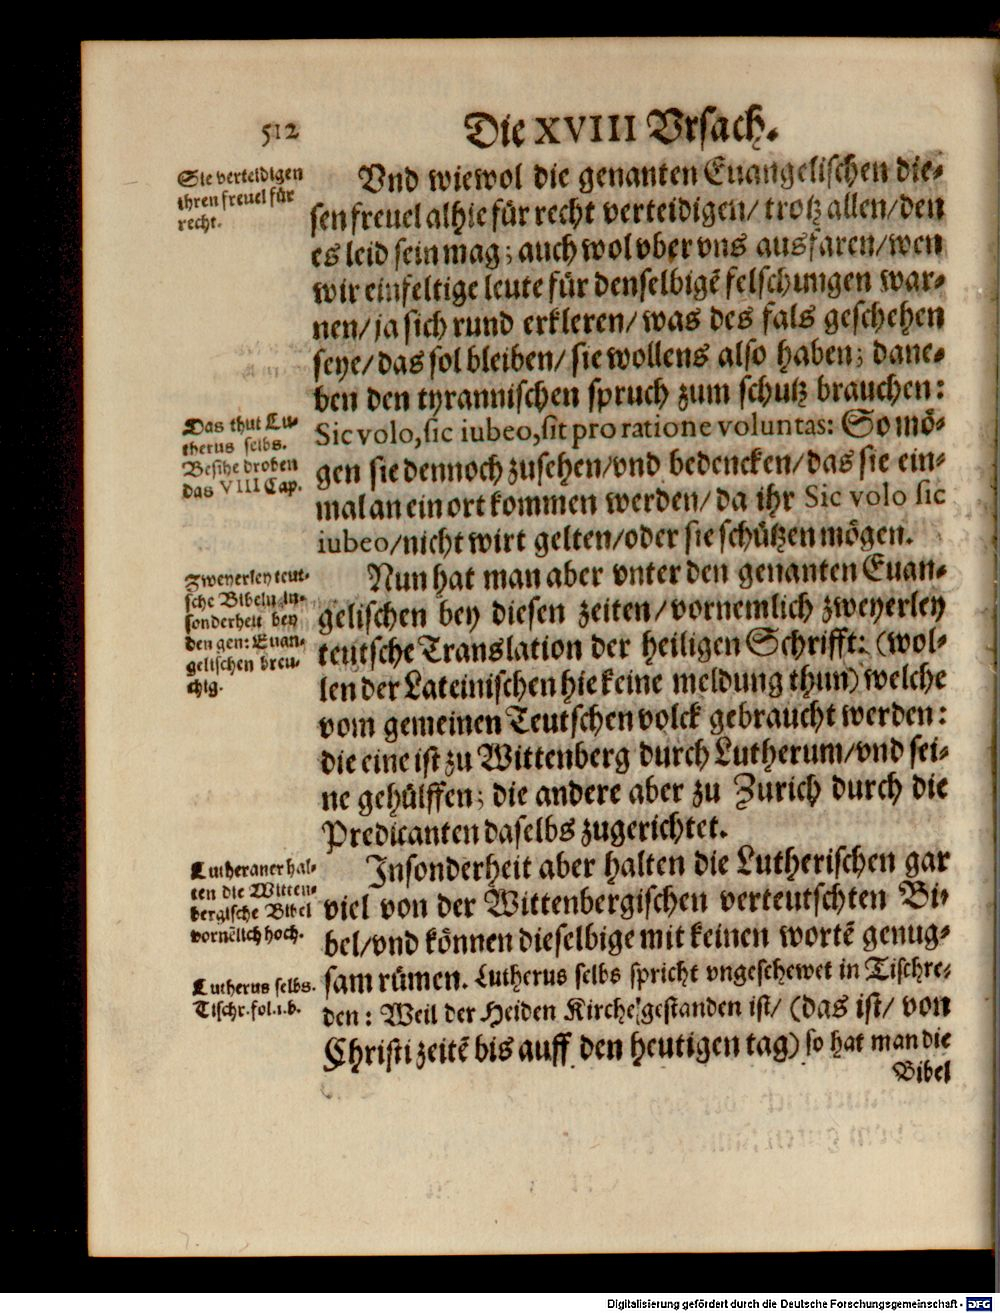 512
Die XVIII Vrsach.
Sie verteidigen
ihren freuel für
recht.
Vnd wiewol die genanten Euangelischen die-
sen freuel alhie für recht verteidigen/ trotz allen/ den
es leid sein mag; auch wol vber vns ausfaren/ wen
wir einfeltige leute für denselbigē felschungen war-
nen/ ja sich rund erkleren/ was des fals geschehen
seye/ das sol bleiben/ sie wollens also haben; dane-
ben den tyrannischen spruch zum schutz brauchen:
Das thut Lu-
therus selbs.
Besihe droben
das VIII Cap.
Sic volo, sic iubeo, sit pro ratione voluntas: So mö-
gen sie dennoch zusehen/ vnd bedencken/ das sie ein-
mal an ein ort kommen werden/ da ihr Sic volo sic
iubeo/ nicht wirt gelten/ oder sie schützen mögen.
Zweyerley teut-
sche Bibeln in-
sonderheit bey
den gen: Euan-
gelischen breu-
chig.
Nun hat man aber vnter den genanten Euan-
gelischen bey diesen zeiten/ vornemlich zweyerley
teutsche Translation der heiligen Schrifft: (wol-
len der Lateinischen hie keine meldung thun) welche
vom gemeinen Teutschen volck gebraucht werden:
die eine ist zu Wittenberg durch Lutherum/ vnd sei-
ne gehülffen; die andere aber zu Zurich durch die
Predicanten daselbs zugerichtet.
Lutheraner hal-
ten die Witten-
bergische Bibel
vornēlich hoch.
Insonderheit aber halten die Lutherischen gar
viel von der Wittenbergischen verteutschten Bi-
bel/ vnd können dieselbige mit keinen wortē genug-
Lutherus selbs.
Tischr. fol. 1. b.
sam rümen. Lutherus selbs spricht vngeschewet in Tischre-
den: Weil der Heiden Kirche gestanden ist/ (das ist/ von
Christi zeitē bis auff den heutigen tag) so hat man die
Bibel
Digitalisierung gefördert durch die Deutsche Forschungsgemeinschaft - DFG